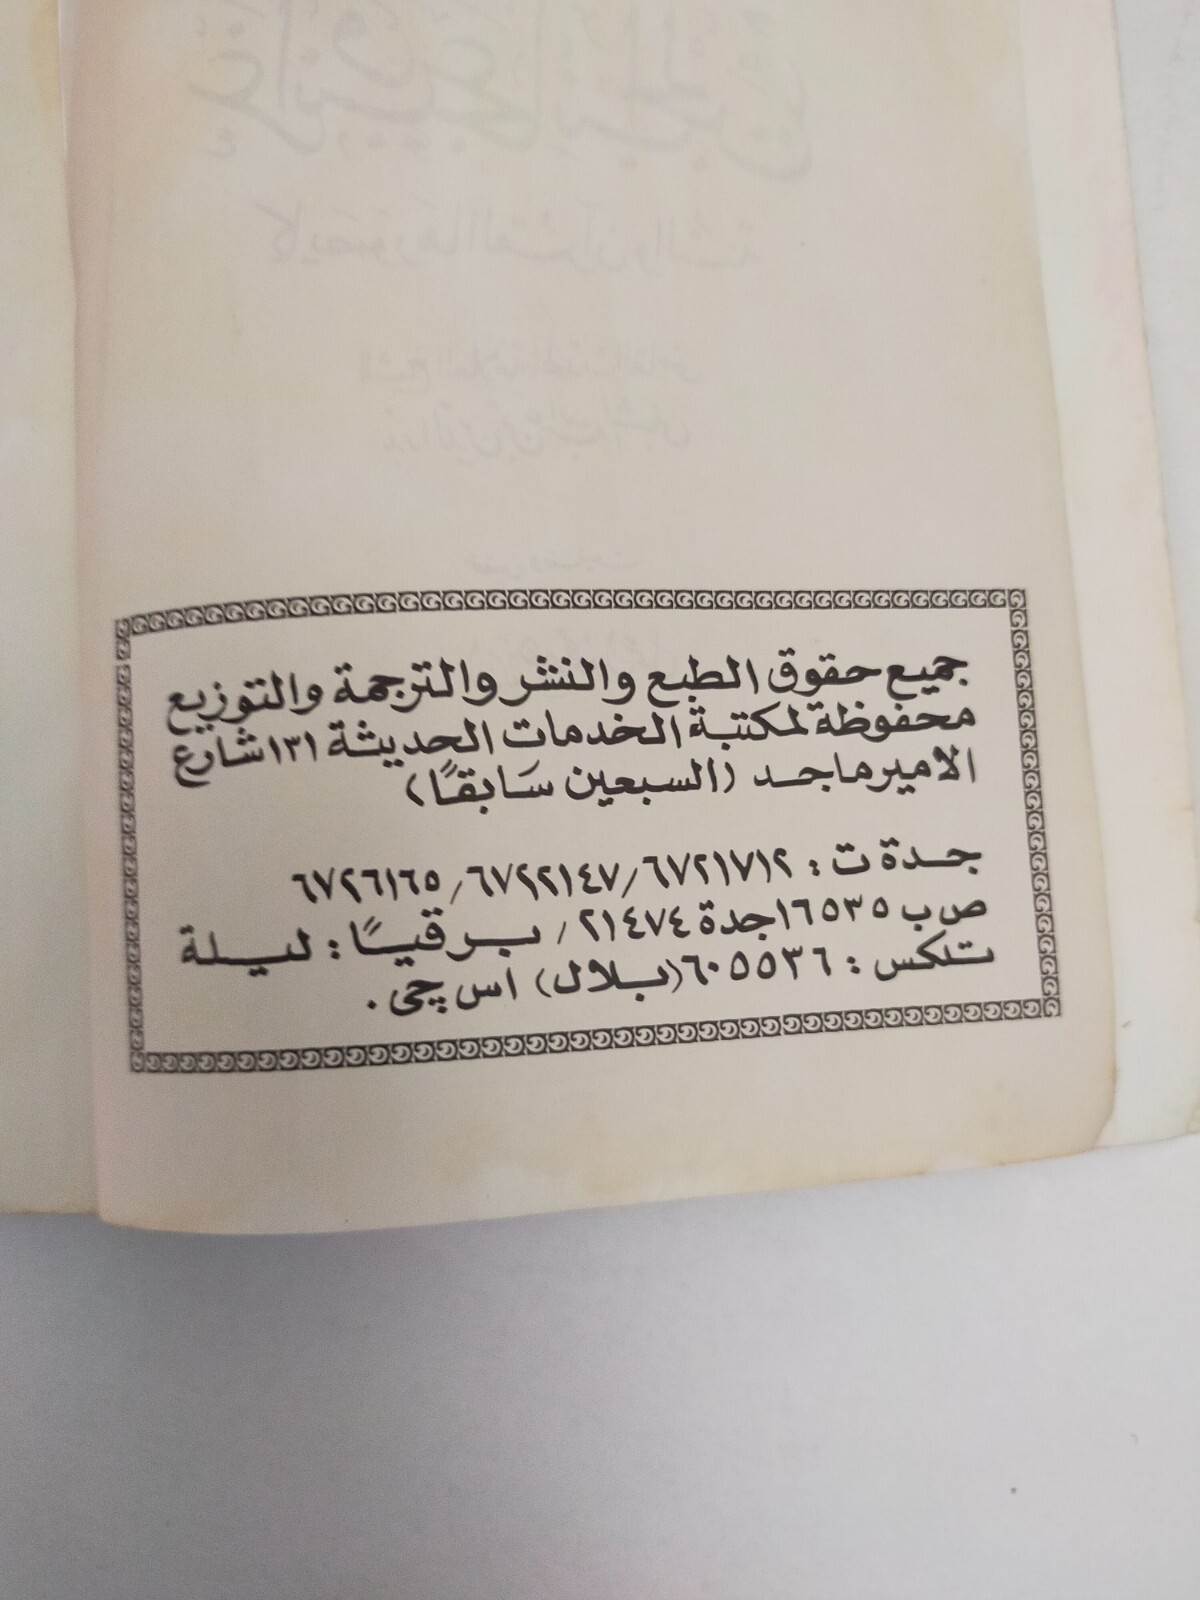 جميع حقوق الطبع والنشر والترجمة والتوزيع
محفوظة لمكتبة الخدمات الحديثة ١٣١ شارع
الامير ماجد (السبعين سَابقًا)
جدة ت : ٦٧٢١٧١٢ / ٦٧٢٢١٤٧ / ٦٧٢٦١٦٥
ص ب ١٦٥٣٥ جدة ٢١٤٧٤ / برقيًا : ليلة
تلكس : ٦٠٥٥٣٦ (بلال) اس چى .